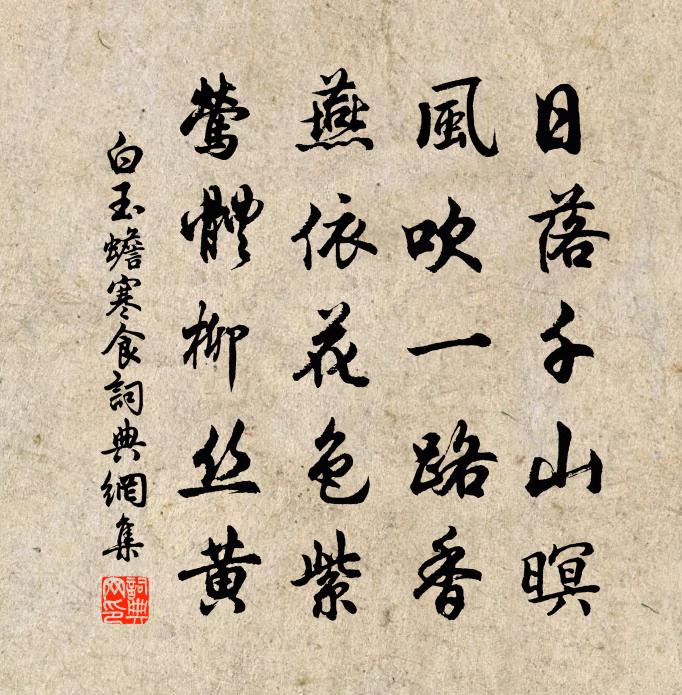 日落千山暝
風吹一路香
燕依花色紫
鶯體柳丝黃
白玉蟾寒食詞典網集
詞典网印